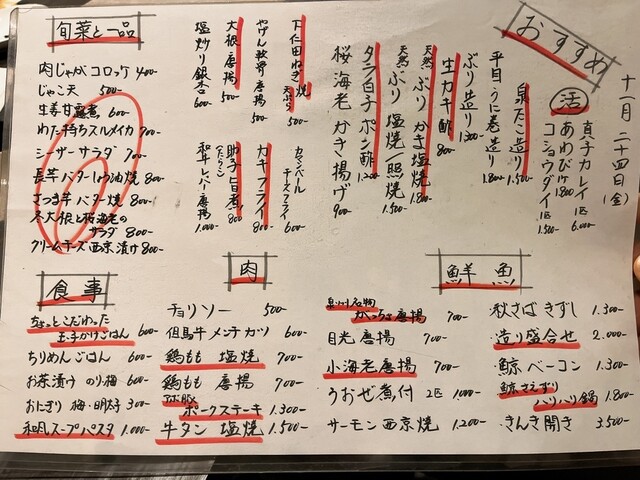 おすすめ
十一月二十四日(金)
活
真子カレイ 1匹 6.000-
あわび 1ヶ 1.800-
コショウダイ 1匹 1.500-
泉だこ造り 1.500-
平目・うに巻造り 1.800-
ぶり造り 1.300-
生カキ酢 800-
天然ぶりかま塩焼 1.800-
天然ぶり塩焼/照焼 1.500-
タラ白子ポン酢 1.200-
桜海老かき揚げ 900-
下仁田ねぎ焼 天ぷら 500-
やげん軟骨唐揚 500-
大根唐揚 500-
塩炒り銀杏 600-
カマンベールチーズフライ 600-
カキフライ 800-
助子旨煮 (たらのこ) 800-
和牛レバー唐揚 1.000-
旬菜と一品
肉じゃがコロッケ 400-
じゃこ天 500-
生姜甘露煮 600-
わた持ちスルメイカ 700-
シーザーサラダ 700-
長芋バターしょうゆ焼 800-
さつま芋バター焼 800-
冬大根と桜海老の
サラダ 800-
クリームチーズ西京漬け 800-
食事
ちょっとこだわった
玉子かけごはん 600-
ちりめんごはん 600-
お茶漬け のり・梅 600-
おにぎり 梅・明太子 300-
和風スープパスタ 1.000-
肉
チョリソー 500-
但馬牛メンチカツ 600-
鶏もも 塩焼 700-
鶏もも 唐揚 700-
ポークステーキ 1.300-
牛タン 塩焼 1.500-
鮮魚
泉州名物
がっちょ唐揚 700-
目光唐揚 700-
小海老唐揚 700-
うおぜ煮付 2匹 1000-
サーモン西京焼 1.200-
秋さばきずし 1.300-
造り盛合せ 2.000-
鯨ベーコン 1.300-
鯨さえずり
ハリハリ鍋 1.800-
きんき開き 3.500-